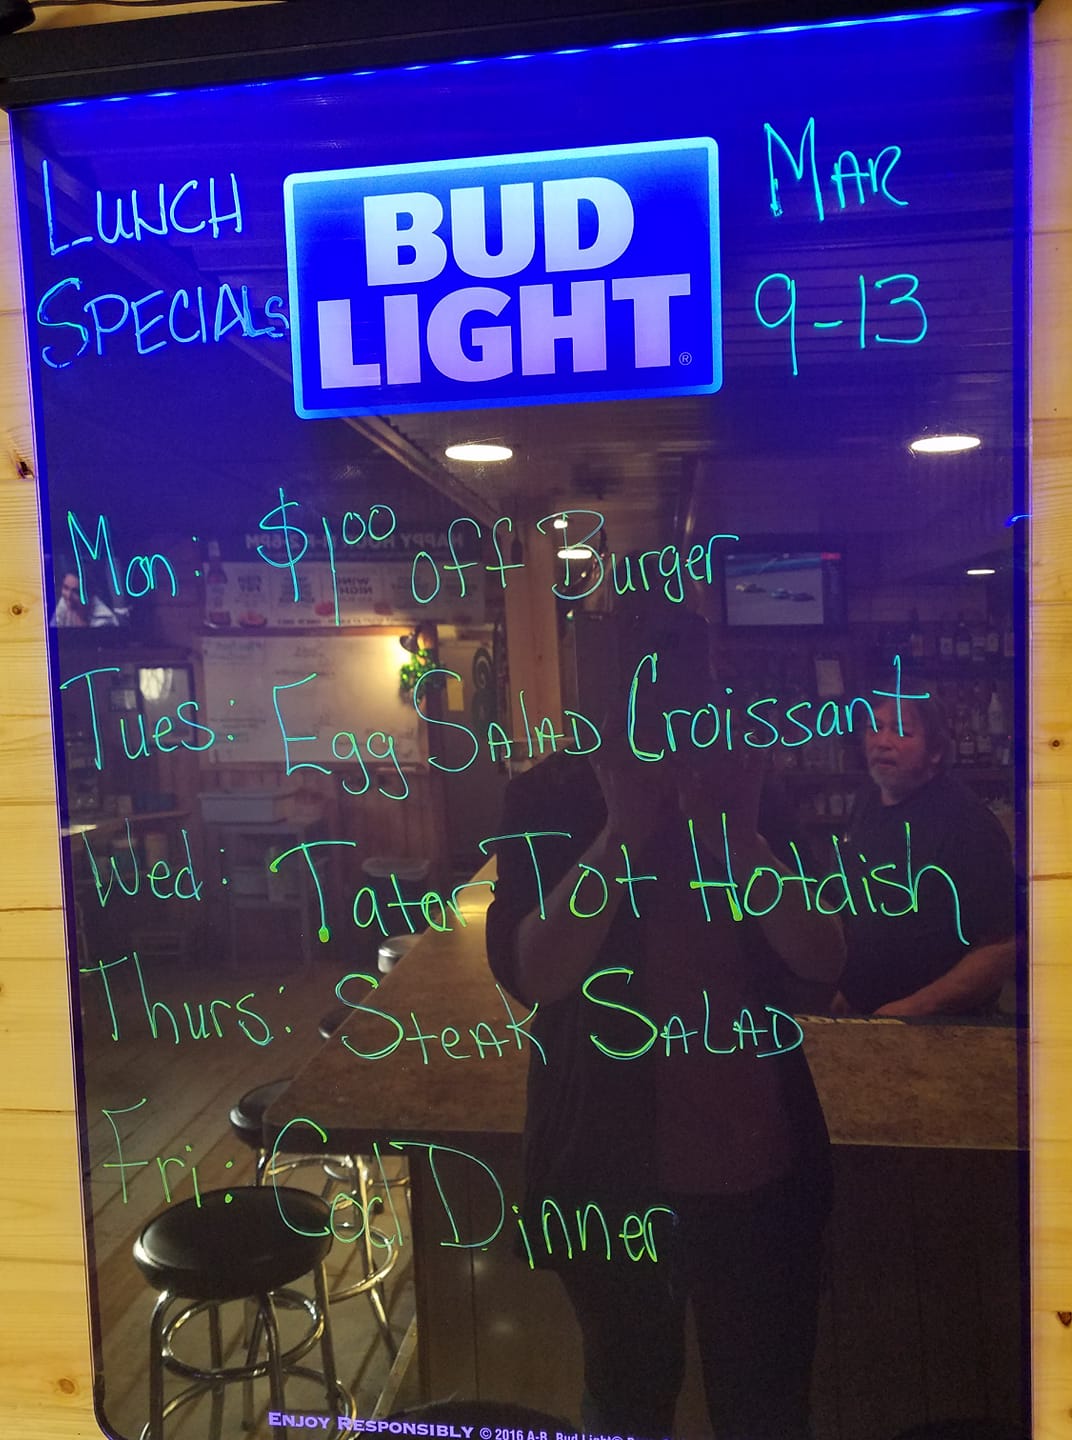 LUNCH
SPECIALS
BUD
LIGHT®
MAR
9-13
Mon: $1.00 off Burger
Tues: Egg SALAD Croissant
Wed: Tator Tot Hotdish
Thurs: Steak SALAD
Fri: Cod Dinner
ENJOY RESPONSIBLY © 2016 A-B, Bud Light®